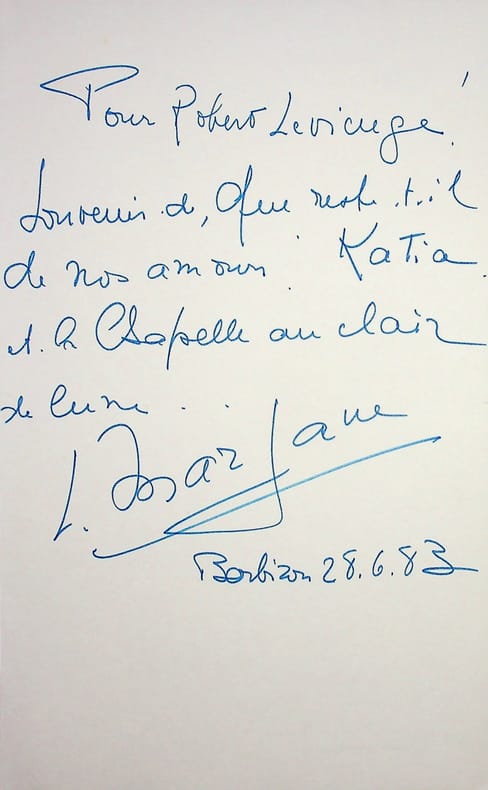 Pour Robert Levicuge
Souvenir de, Que reste.t.il
de nos amours Katia
et la Chapelle au clair
de lune ...
L. Marjane
Barbizon 28.6.83